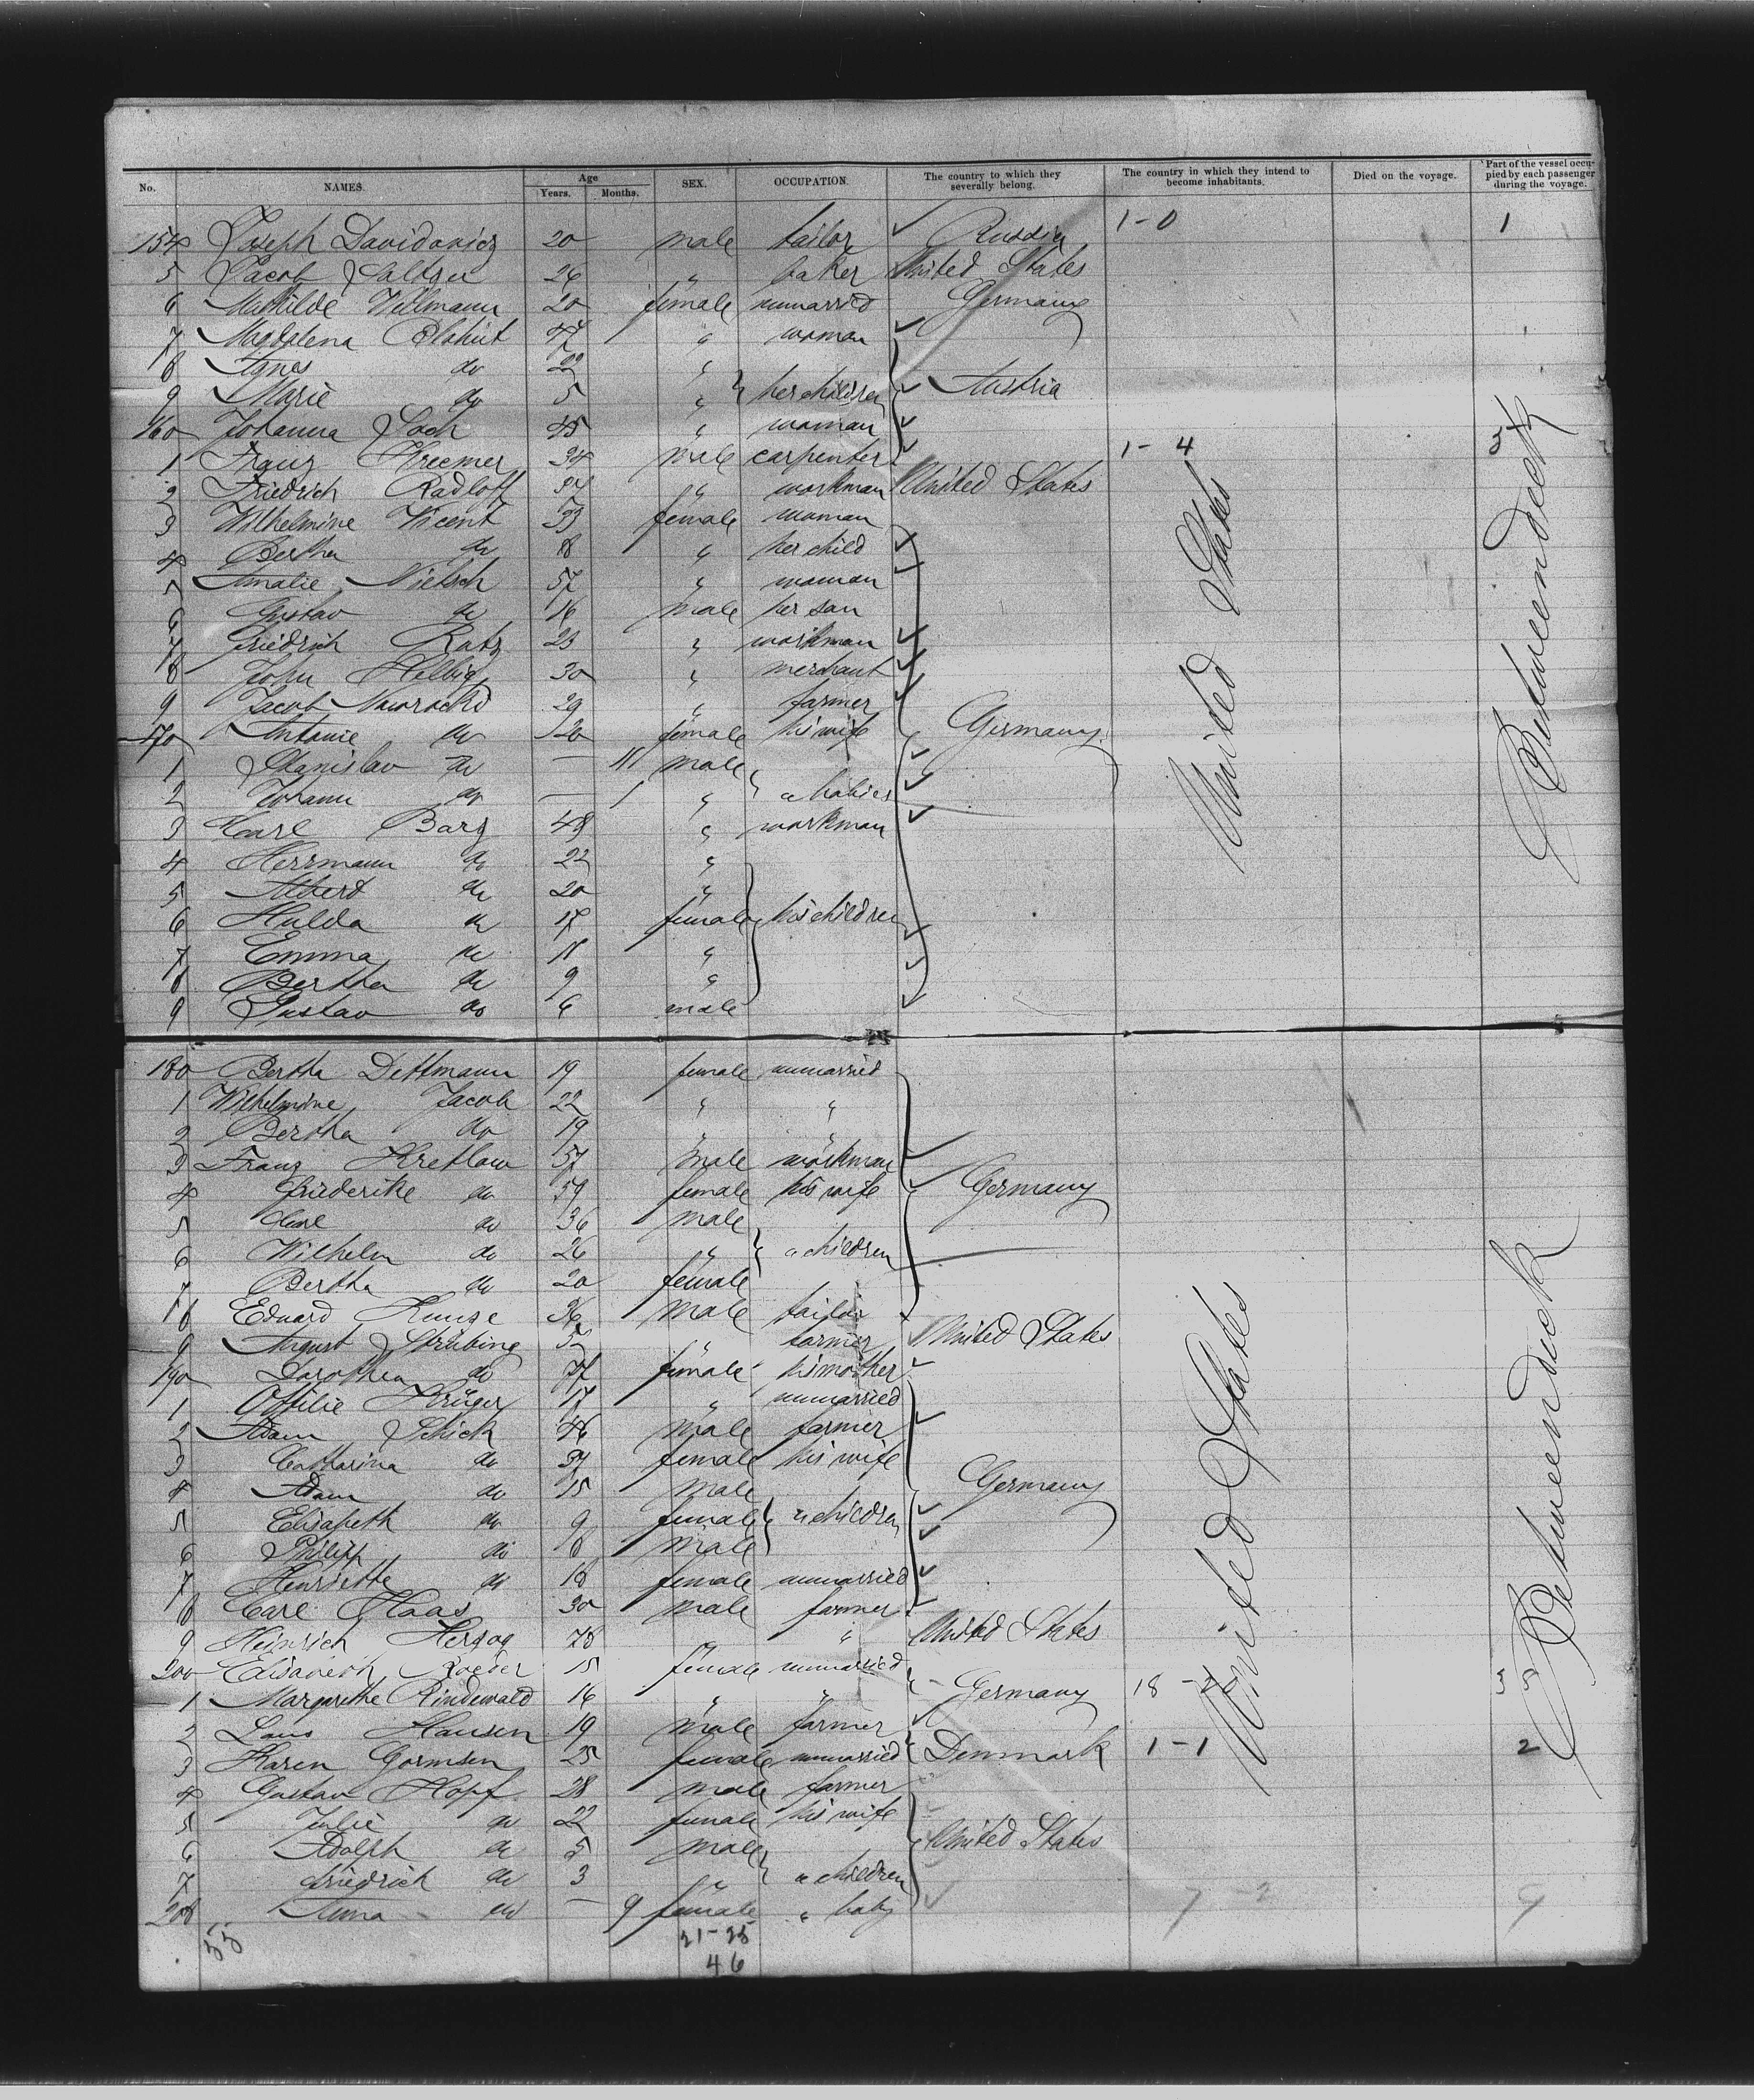 No. NAMES. Age Years. Months. SEX. OCCUPATION. The country to which they severally belong. The country in which they intend to become inhabitants. Died on the voyage. Part of the vessel occupied by each passenger during the voyage.
154 Joseph Davidovicz 20 male tailor Russia 1-0 1
5 Jacob 26 " baker United States
6 Mathilde Willmann 20 female unmarried Germany
7 Magdalena 47 " woman
8 Agnes do 22 "
9 Marie do 5 " her children Austria
160 Johanna 45 " woman
1 Franz Kreemer 34 male carpenter 1-4
2 Friedrich Radloff " workman United States
3 Wilhelmine Vicent 33 female woman
4 Bertha do 8 " her child
5 Amalie Nietsch 57 " woman
6 Gustav do 16 male her son
7 Friedrich Ratz 23 " workman
8 John Helbig 30 " merchant
9 Jacob Nawrocki 29 " farmer
170 Antonie do 20 female his wife Germany
1 Stanislav do — 11 male
2 Johann do — 1 " " babies
3 Carl Barz 48 " workman
4 Herrmann do 22 "
5 Albert do 20 "
6 Hulda do 17 female his children
7 Emma do 11 "
8 Bertha do 9 "
9 Gustav do 6 male
United States
Betweendeck
180 Bertha Dettmann 19 female unmarried
1 Wilhelmine Jacob 22 " "
2 Bertha do 19 " "
3 Franz Kretlow 57 male workman
4 Friederike do 59 female his wife Germany
5 Carl do 36 male
6 Wilhelm do 26 " " children
7 Bertha do 20 female
8 Eduard Kunze 36 male tailor
9 August Strübing 52 " farmer United States
190 Dorothea do 77 female his mother
1 Ottilie Krüger 17 " unmarried
2 Adam Schick 46 male farmer
3 Catharina do 37 female his wife
4 Adam do 15 male Germany
5 Elisabeth do 9 female " children
6 Philipp do 8 male
7 Henriette do 18 female unmarried
8 Carl Haas 30 male farmer
9 Heinrich Herzog 78 " United States
200 Elisabeth Roeder 15 female unmarried
1 Margarethe Rindewald 16 " " Germany
2 Hansen 19 male farmer
3 Karen Gormsen 25 female unmarried Denmark 1-1 2
4 Gustav Hopf 28 male farmer
5 Julie do 22 female his wife
6 Adolph do 5 male United States
7 Friedrich do 3 " " children
208 Anna do — 9 female " baby 7-2 9
United States
Betweendeck
55
21-25
46